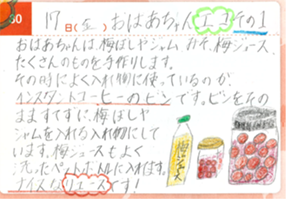 30 17日(金) おばあちゃんエコその1
おばあちゃんは、梅ぼしやジャム、みそ、梅ジュース、
たくさんのものを手作りします。
その時によく入れ物に使っているのが、
インスタントコーヒーのビンです。ビンをその
ままですてずに、梅ぼしや
ジャムを入れる入れ物にして
います。梅ジュースもよく
洗ったペットボトルに入れます。
ナイスなリユースです!
梅ジュース